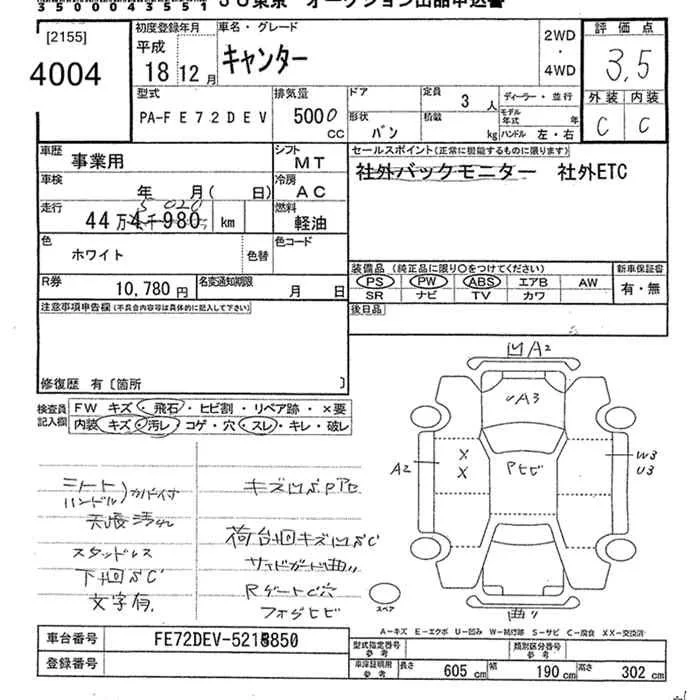 350043551 JU東京 オークション出品申込書
[2155]
4004
初度登録年月
平成
18年12月
車名・グレード
キャンター
2WD
・
4WD
評価点
3.5
外装 内装
C C
型式
PA-FE72DEV
排気量
5000 CC
ドア
形状
バン
定員
3 人
積載
kg
ディーラー・並行
モデル年式 年
ハンドル 左・右
車歴
事業用
シフト
MT
車検
年 月( 日)
冷房
AC
走行
44万4千980 km
5 020
燃料
軽油
色
ホワイト
色替
色コード
R券
10,780円
名変通知期限
月 日
セールスポイント(正常に機能するものに限ります)
社外バックモニター 社外ETC
装備品 (純正品に限り○をつけてください)
PS PW ABS エアB AW
SR ナビ TV カワ
新車保証書
有・無
後日品
注意事項申告欄(不具合内容等は具体的に記入して下さい)
修復歴 有〔箇所 〕
検査員
記入欄
FW キズ・飛石・ヒビ割・リペア跡・×要
内装 キズ・汚レ・コゲ・穴・スレ・キレ・破レ
シート
ハンドル)カバー付
天張汚れ
スタッドレス
下回サC
文字有
荷台回キズ凹サC
サイドガード曲り
Rゲート C穴
フォグヒビ
凹A2
A3
A2
X
X
Pヒビ
W3
U3
曲り
スペア
A-キズ E-エクボ U-凹み W-補修跡 S-サビ C-腐食 XX-交換済
車台番号
FE72DEV-5218850
登録番号
型式指定番号
参考
類別区分番号
参考
車庫証明用
参考
長さ 605 cm 幅 190 cm 高さ 302 cm